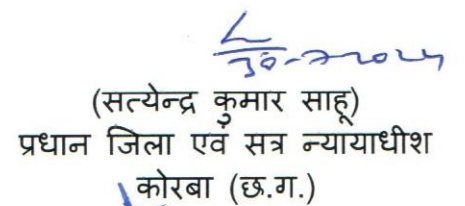 30-7-2024
(सत्येन्द्र कुमार साहू)
प्रधान जिला एवं सत्र न्यायाधीश
कोरबा (छ.ग.)